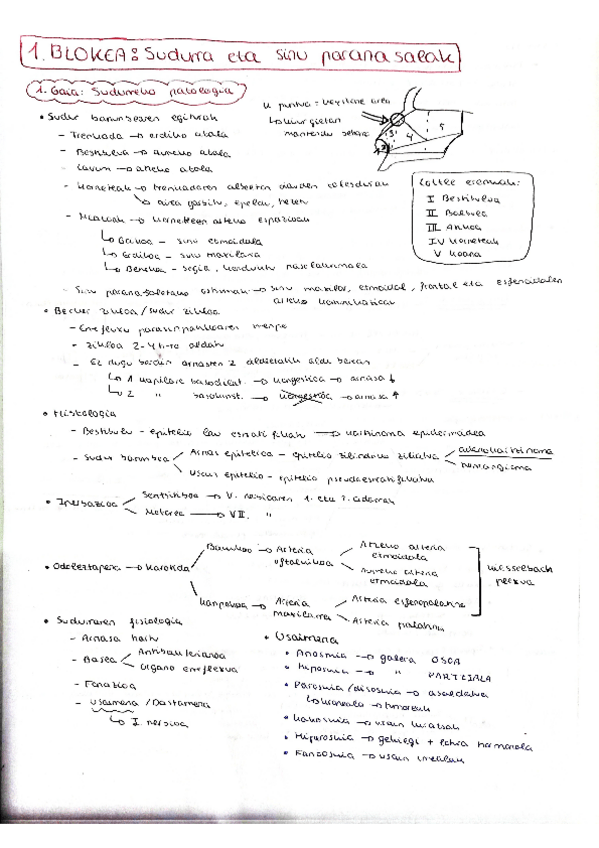 1. BLOKEA: Sudurra eta sinu paranasalak
1. Gaia: Sudurreko patologia
• Sudur barrunbearen egiturak
K puntua = area
3 4 5
- Trenkada → erdiko atala
- Bestibulua → aurreko atala
- Cavum → atzeko atala
- Korneteak → trenkadaren alboetan dauden
→ airea , epeldu, heze
- Meatuak → korneteen arteko espazioak
↳ Goikoa - sinu etmoidala
↳ Erdikoa - sinu maxilarra
↳ Behekoa - , konduktu nasolakrimala
Cottle eremuak:
I Bestibulua
II Balbula
III Atikoa
IV Korneteak
V Koana
- Sinu paranasaletako → sinu maxilar, etmoidal, frontal eta esfenoidalen
arteko komunikazioa
• Behier zikloa / sudur zikloa
- parasinpatikoaren menpe
- zikloa 2-4 h-ro aldatu
- Ez dugu berdin arnasten 2 aldeetatik aldi berean
↳ 1 kapilare basodilat. → kongestioa → arnasa ↓
↳ 2 " basokonst. → kongestioa → arnasa ↑
• Histologia
- Bestibulu - epitelio lau estratifikatu → kartzinoma epidermoidea
- Sudur barrunbea
Arnas epitelioa - epitelio zilindriko ziliatua
adenokartzinoma
Usaim epitelio - epitelio pseudoestratifikatua
• Inerbazioa
Sentsitiboa → V. nerbioaren 1. eta 2. adarrak
Motorea → VII. "
• Odoleztapena → Karotida
Barnekoa → Arteria oftalmikoa
Atzeko arteria etmoidala
Aurreko arteria etmoidala
Kanpokoa → Arteria maxilarra
Arteria esfenopalatina
Arteria palatina
Kiesselbach plexua
• Sudurraren fisiologia
- Arnasa hartu
- Babesa
Antibakterianoa
Organo erreflexua
- Fonazioa
- Usaimena / Dastamena
↳ I. nerbioa
• Usaimena
• Anosmia → galera OSOA
• Hiposmia → " PARTZIALA
• Parosmia / disosmia → asaldatua
→ tumoreak
• Kakosmia → usain txarrak
• Hiperosmia → gehiegi + hormonala
• Fantosmia → usain irrealak